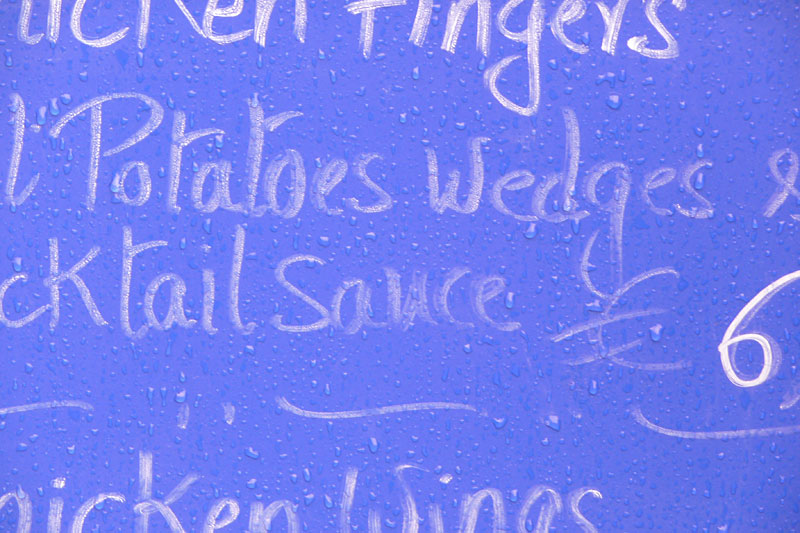 icken Fingers
l Potatoes Wedges &
cktail Sauce € 6
hicken Wings